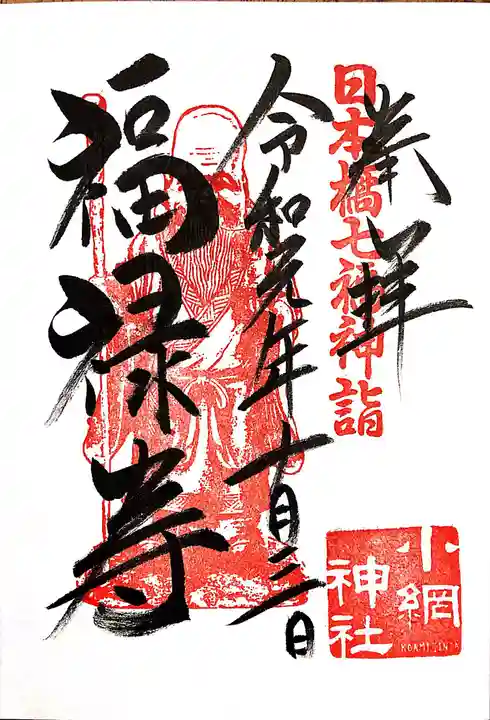 奉拝
日本橋七福神詣
令和元年十月三日
福禄寿
小網
神社
KOAMIJINJA